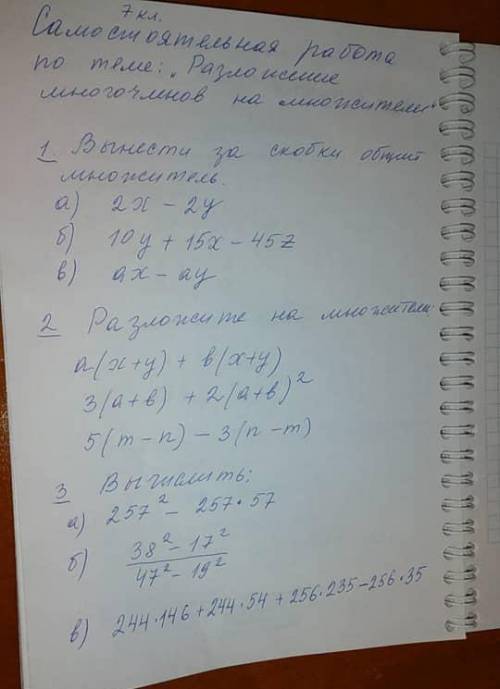 7 кл.
Самостоятельная работа
по теме: „Разложение
многочленов на множители"
1 Вынести за скобки общий
множитель.
а) 2x − 2y
б) 10y + 15x − 45z
в) ax − ay
2 Разложите на множители:
a(x+y) + b(x+y)
3(a+b) + 2(a+b)²
5(m−n) − 3(n−m)
3 Вычислить:
а) 257² − 257·57
б) 38² − 17²
47² − 19²
в) 244·146 + 244·54 + 256·235 − 256·35